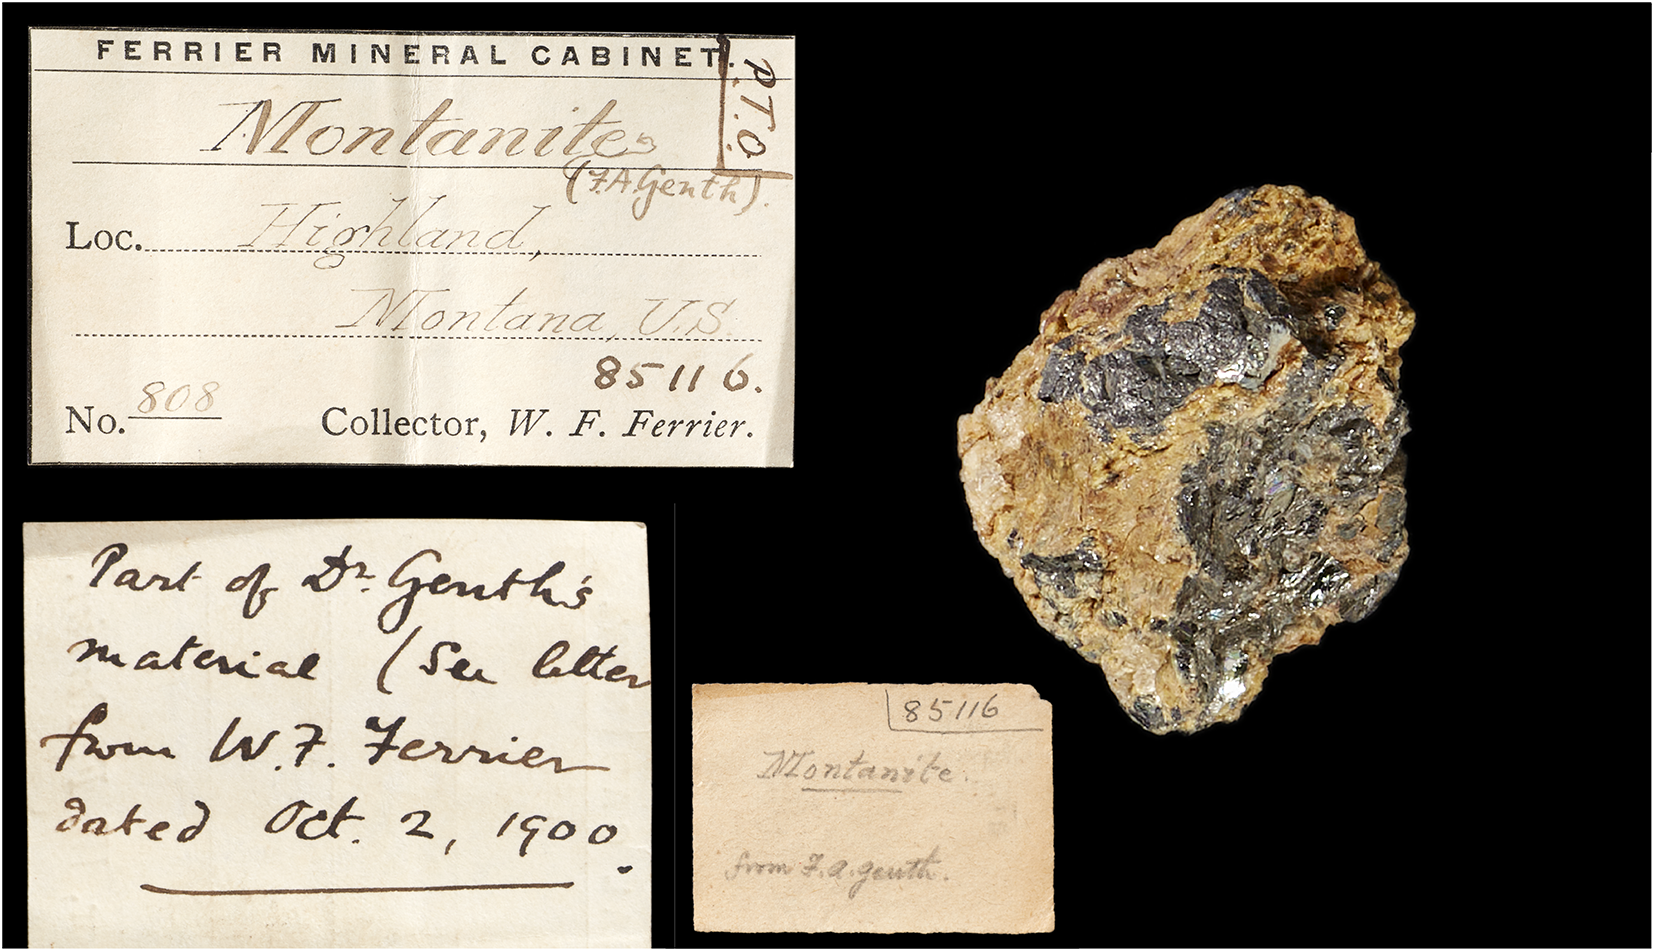 FERRIER MINERAL CABINET.
P.T.O.
Montanite
(F.A. Genth).
Loc. Highland,
Montana, U.S.
85116.
No. 808 Collector, W. F. Ferrier.
Part of Dr. Genth's
material (See letter
from W. F. Ferrier
dated Oct. 2, 1900.
85116
Montanite.
from F. A. Genth.